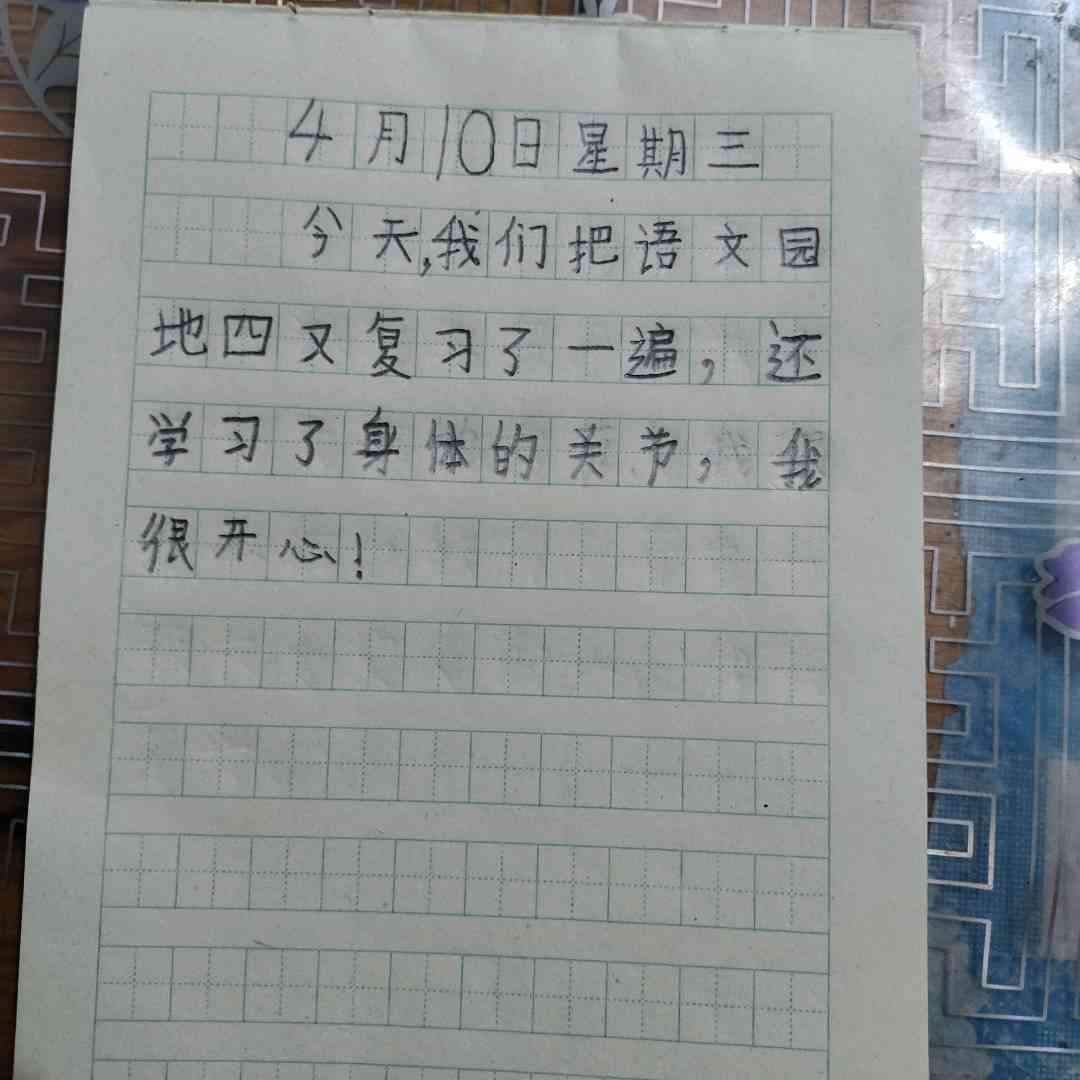 4月10日星期三
今天,我们把语文园
地四又复习了一遍，还
学习了身体的关节，我
很开心！